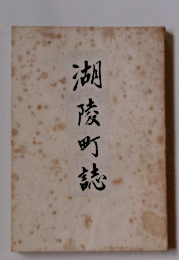 湖陵町誌